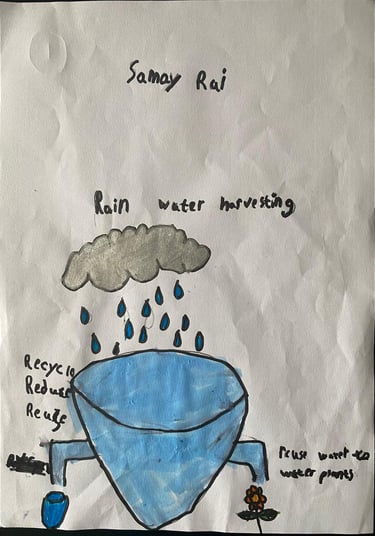 Samay Rai
Rain water harvesting
Recycle
Reduse
Reuse
reuse water to
water plants